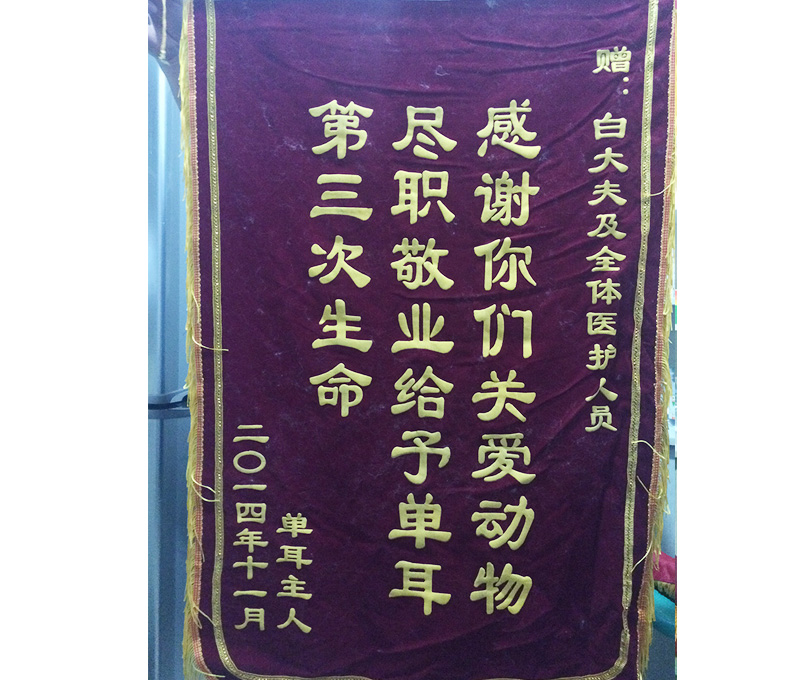 赠：白大夫及全体医护人员
感谢你们关爱动物
尽职敬业给予单耳
第三次生命
单耳主人
二〇一四年十一月